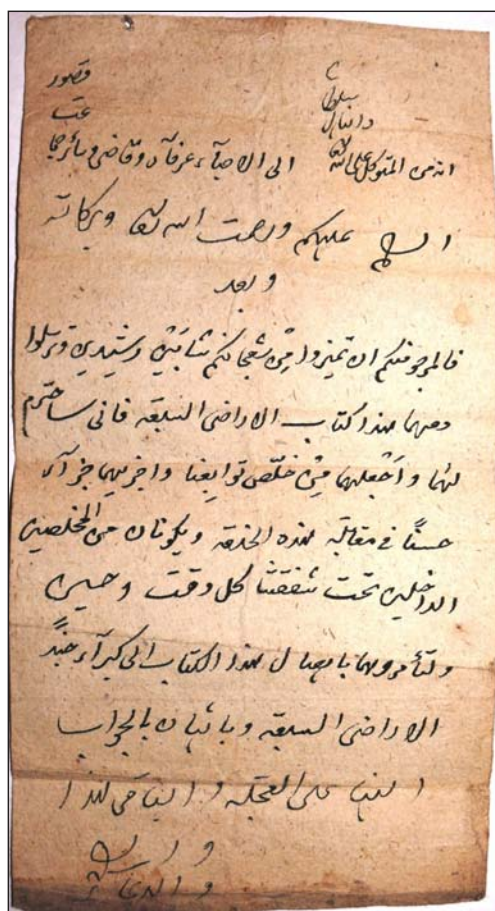 قصور
دانيال
انه من المتوكل على الله الى الاحبآء عرفآء وقاضي وسائر جماعت
السلام عليكم ورحمت الله تعالى وبركاته
وبعد
فالمرجو منكم ان تميزوا من شجعانكم شابين رشيدين وترسلوا
معهما هذا كتاب الاراضي السبعة فاني ساحترم
لهما واجعلهما من خلّص توابعنا واجزيهما جزآء
حسنًا في مقابلة هذه الخدمة ويكونان من المخلصين
الداخلين تحت شفقتنا كل وقت وحين
ولتأمروهما بايصال هذا الكتاب الى كبرآء
الاراضي السبعة وياتيان بالجواب
الينا على العجلة والباقي هذا
والسلام
والدعاء